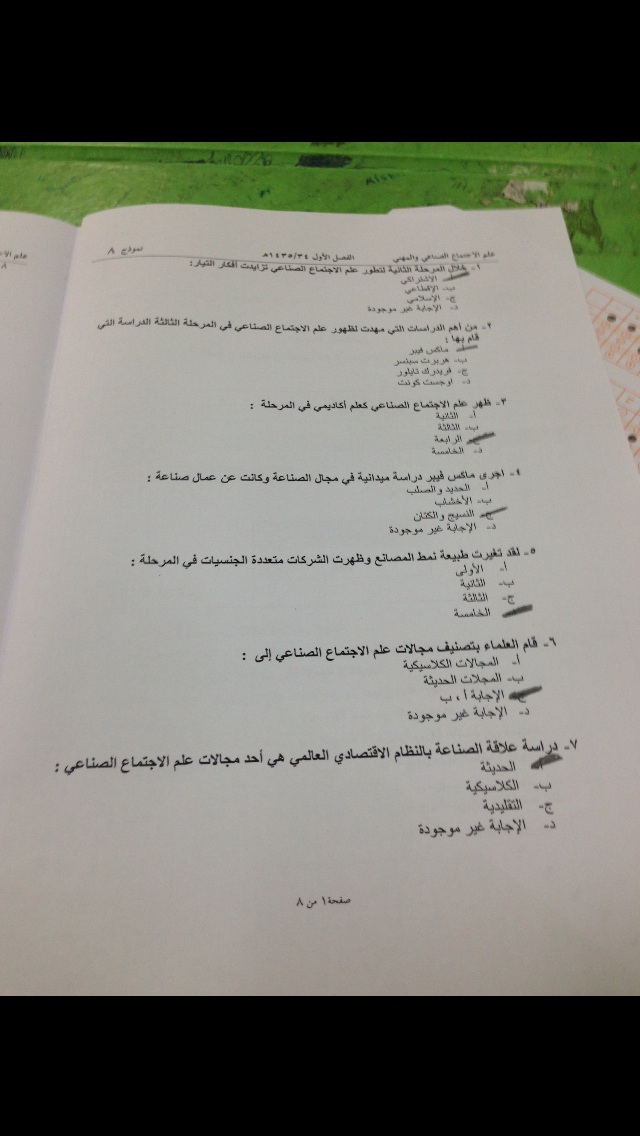 علم الاجتماع الصناعي والمهني الفصل الأول ١٤٣٥/٣٤هـ نموذج ٨
١- خلال المرحلة الثانية لتطور علم الاجتماع الصناعي تزايدت أفكار التيار:
الاشتراكي
ب- الإقطاعي
ج- الإسلامي
د- الإجابة غير موجودة
٢- من أهم الدراسات التي مهدت لظهور علم الاجتماع الصناعي في المرحلة الثالثة الدراسة التي
قام بها :
ماكس فيبر
ب- هربرت سبنسر
ج- فريدرك تايلور
د- اوجست كونت
٣- ظهر علم الاجتماع الصناعي كعلم أكاديمي في المرحلة :
أ- الثانية
ب- الثالثة
ج- الرابعة
د- الخامسة
٤- اجرى ماكس فيبر دراسة ميدانية في مجال الصناعة وكانت عن عمال صناعة :
أ- الحديد والصلب
ب- الأخشاب
ج- النسيج والكتان
د- الإجابة غير موجودة
٥- لقد تغيرت طبيعة نمط المصانع وظهرت الشركات متعددة الجنسيات في المرحلة :
أ- الأولى
ب- الثانية
ج- الثالثة
الخامسة
٦- قام العلماء بتصنيف مجالات علم الاجتماع الصناعي إلى :
أ- المجالات الكلاسيكية
ب- المجلات الحديثة
ج- الإجابة أ ، ب
د- الإجابة غير موجودة
٧- دراسة علاقة الصناعة بالنظام الاقتصادي العالمي هي أحد مجالات علم الاجتماع الصناعي :
أ- الحديثة
ب- الكلاسيكية
ج- التقليدية
د- الإجابة غير موجودة
صفحة ١ من ٨